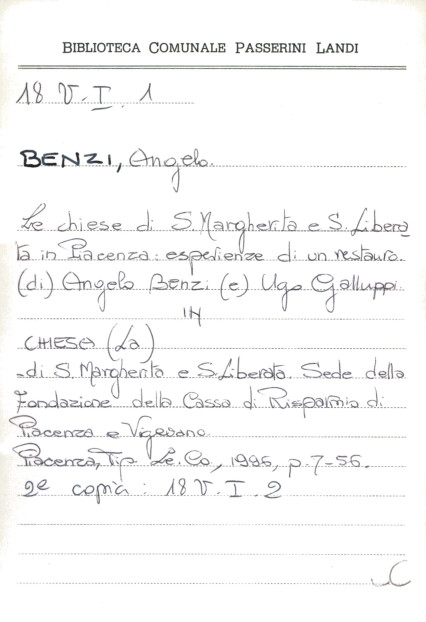 BIBLIOTECA COMUNALE PASSERINI LANDI
18 V. I. 1
BENZI, Angelo.
Le chiese di S. Margherita e S. Libera
ta in Piacenza: esperienze di un restauro.
(di) Angelo Benzi (e) Ugo Galluppi.
IN
CHIESA (La)
-di S. Margherita e S. Liberata. Sede della
Fondazione della Cassa di Risparmio di
Piacenza e Vigevano.
Piacenza, Tip. Le.Co., 1995, p. 7-56.
2e copia: 18 V. I. 2